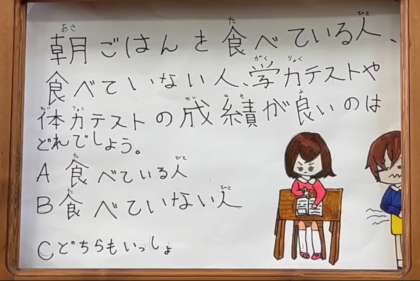 朝ごはんを食べている人、
食べていない人、学力テストや
体力テストの成績が良いのは
どれでしょう。
A 食べている人
B 食べていない人
Cどちらもいっしょ